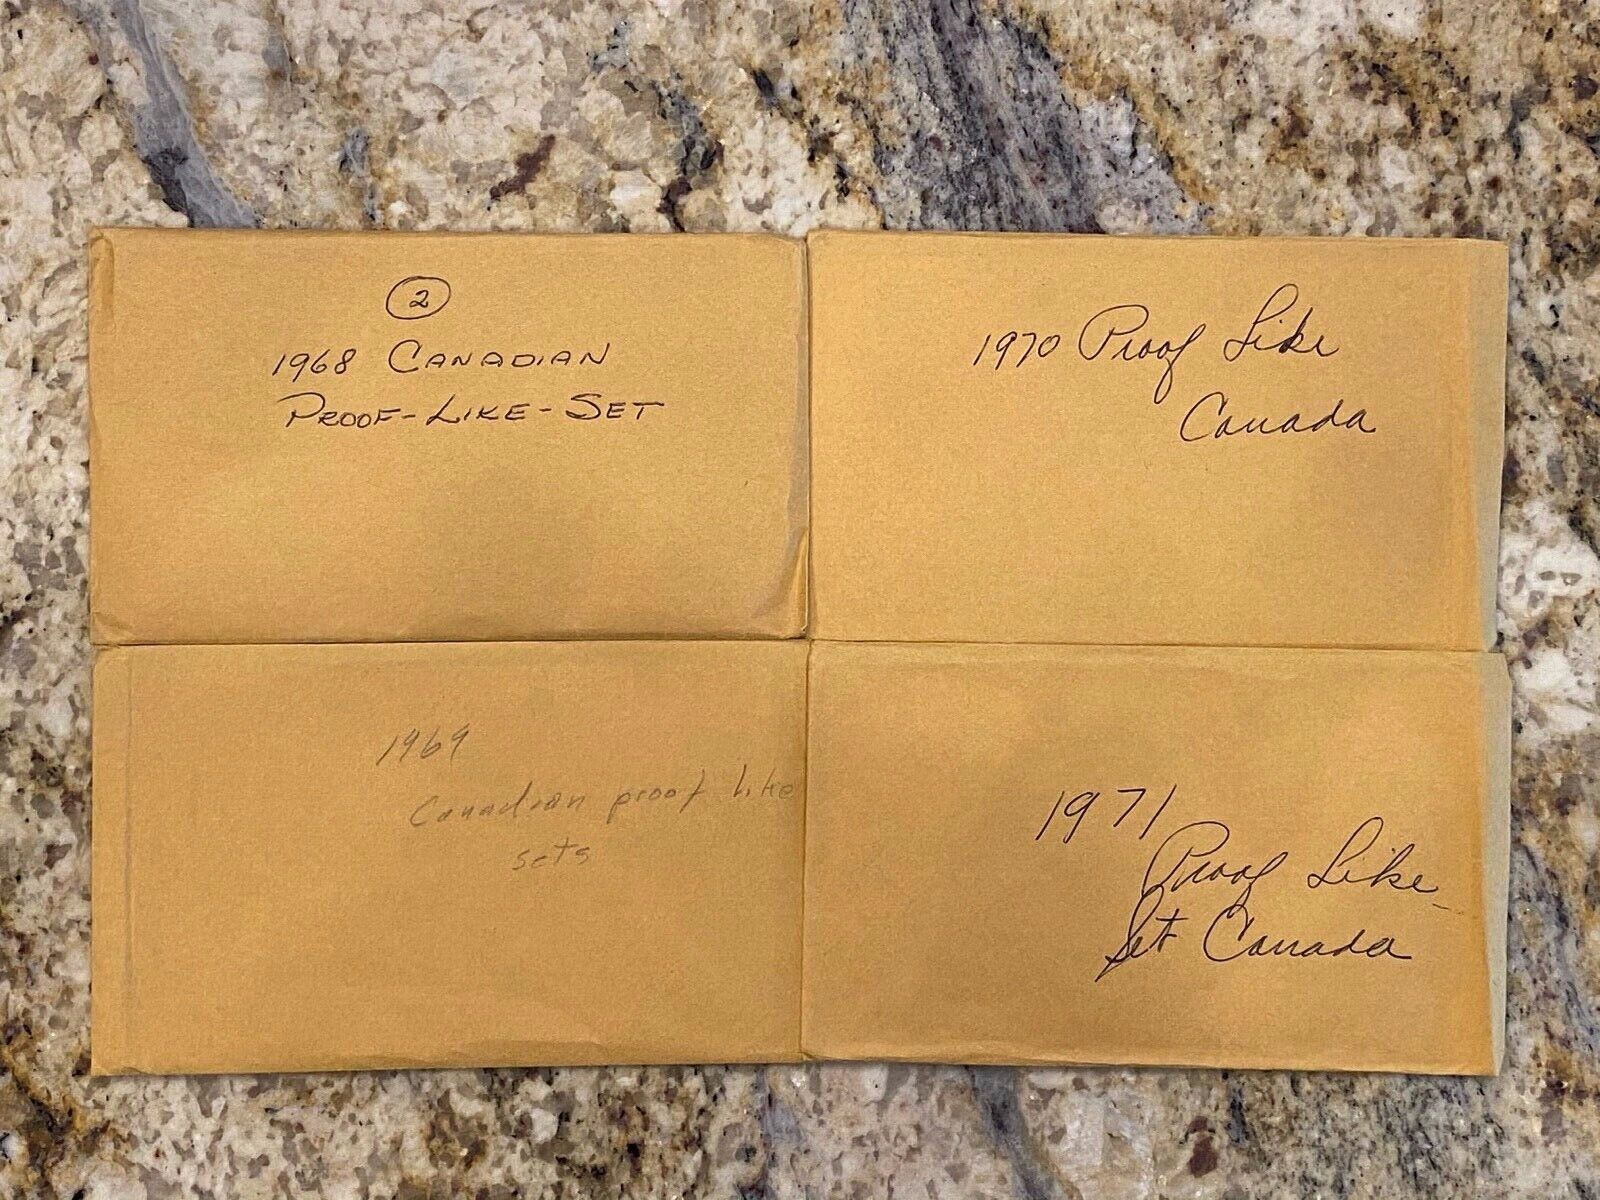 2
1968 CANADIAN
PROOF-LIKE-SET
1970 Proof Like
Canada
1969
Canadian proof like
sets
1971
Proof Like
Set Canada